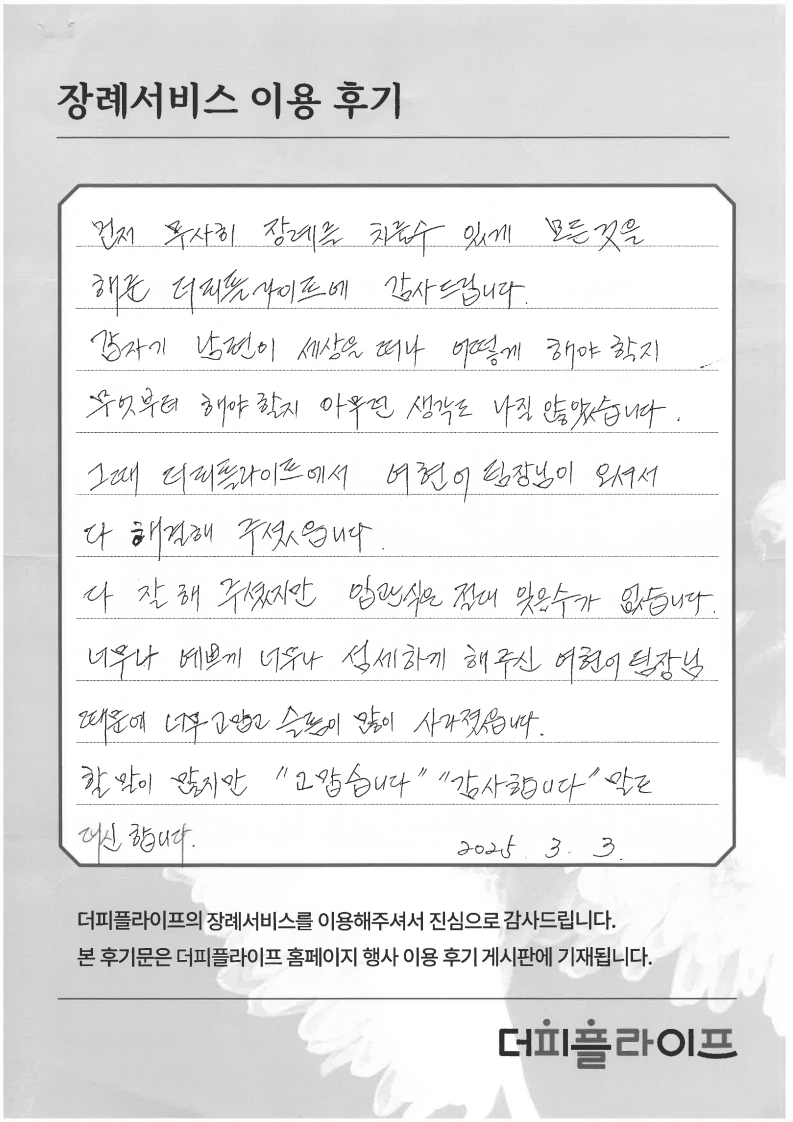 장례서비스 이용 후기
먼저 무사히 장례를 치를수 있게 모든것을
해준 더피플라이프에 감사드립니다.
갑자기 남편이 세상을 떠나 어떻게 해야 할지
무엇부터 해야 할지 아무런 생각도 나질 않았습니다.
그때 더피플라이프에서 여현어 팀장님이 오셔서
다 해결해 주셨습니다.
다 잘 해 주셨지만 입관식은 절대 잊을수가 없습니다.
너무나 예쁘게 너무나 섬세하게 해주신 여현어 팀장님
때문에 너무 고맙고 슬픔이 많이 사라졌습니다.
할 말이 많지만 "고맙습니다" "감사합니다" 말로
대신 합니다.
2025. 3. 3.
더피플라이프의 장례서비스를 이용해주셔서 진심으로 감사드립니다.
본 후기문은 더피플라이프 홈페이지 행사 이용 후기 게시판에 기재됩니다.
더피플라이프